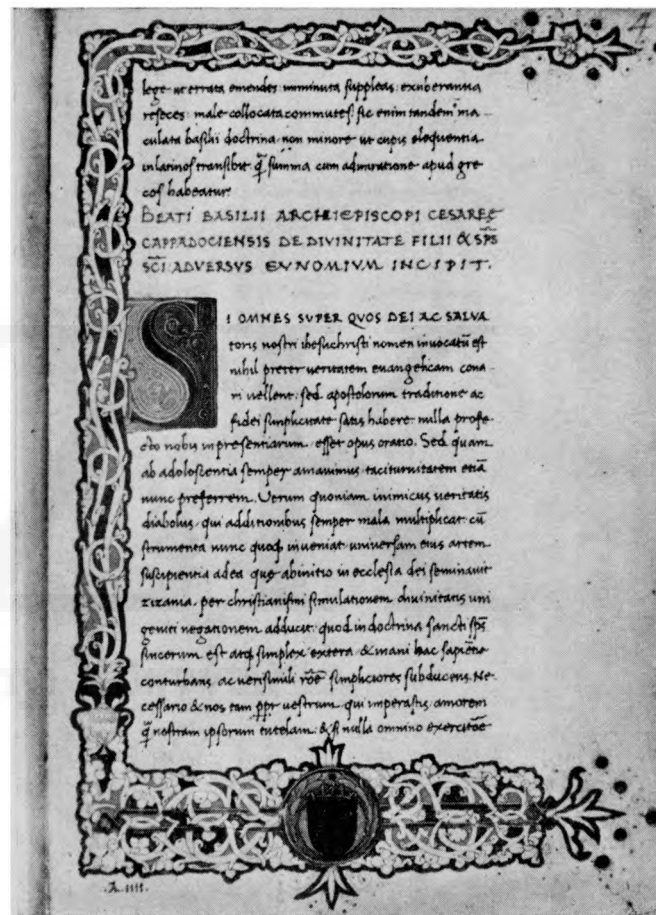 4
lege ut errata emendes: imminuta suppleas: exuberantia
reseces: male collocata commutes: sic enim tandem ma
culata basilii doctrina non minore ut cupis eloquentia
in latinos transibit q̃ summa cum admiratione apud gre
cos habeatur.
BEATI BASILII ARCHIEPISCOPI CESAREE
CAPPADOCIENSIS DE DIVINITATE FILII & SPS̄
SC̄I ADVERSVS EVNOMIVM INCIPIT.
SI OMNES SVPER QVOS DEI AC SALVA
toris nostri ihesuchristi nomen invocatū est
nihil preter veritatem evangelicam cona
ri vellent: sed apostolorum traditione ac
fidei simplicitate satis habere nulla profe
cto nobis inpresentiarum esset opus oratio. Sed quam
ab adolescentia semper amavimus taciturnitatem etiā
nunc preferrem. Verum quoniam inimicus veritatis
diabolus qui additionibus semper mala multiplicat: cū
strumenta nunc quoq̧ inveniat universam eius artem
suscipientia adea que abinitio in ecclesia dei seminavit
zizania. per christianismi simulationem divinitatis uni
geniti negationem adducit: quod in doctrina sancti sps̄
sincerum est atq̧ simplex extera & inani hac sapiētie
conturbans ac verisimili rōe simpliciores subducens. Ne
cessario & nos tam ppr̄ vestrum qui imperastis amorem
q̃ nostram ipsorum tutelam: & si nulla omnino exercitōe
.A. IIII.